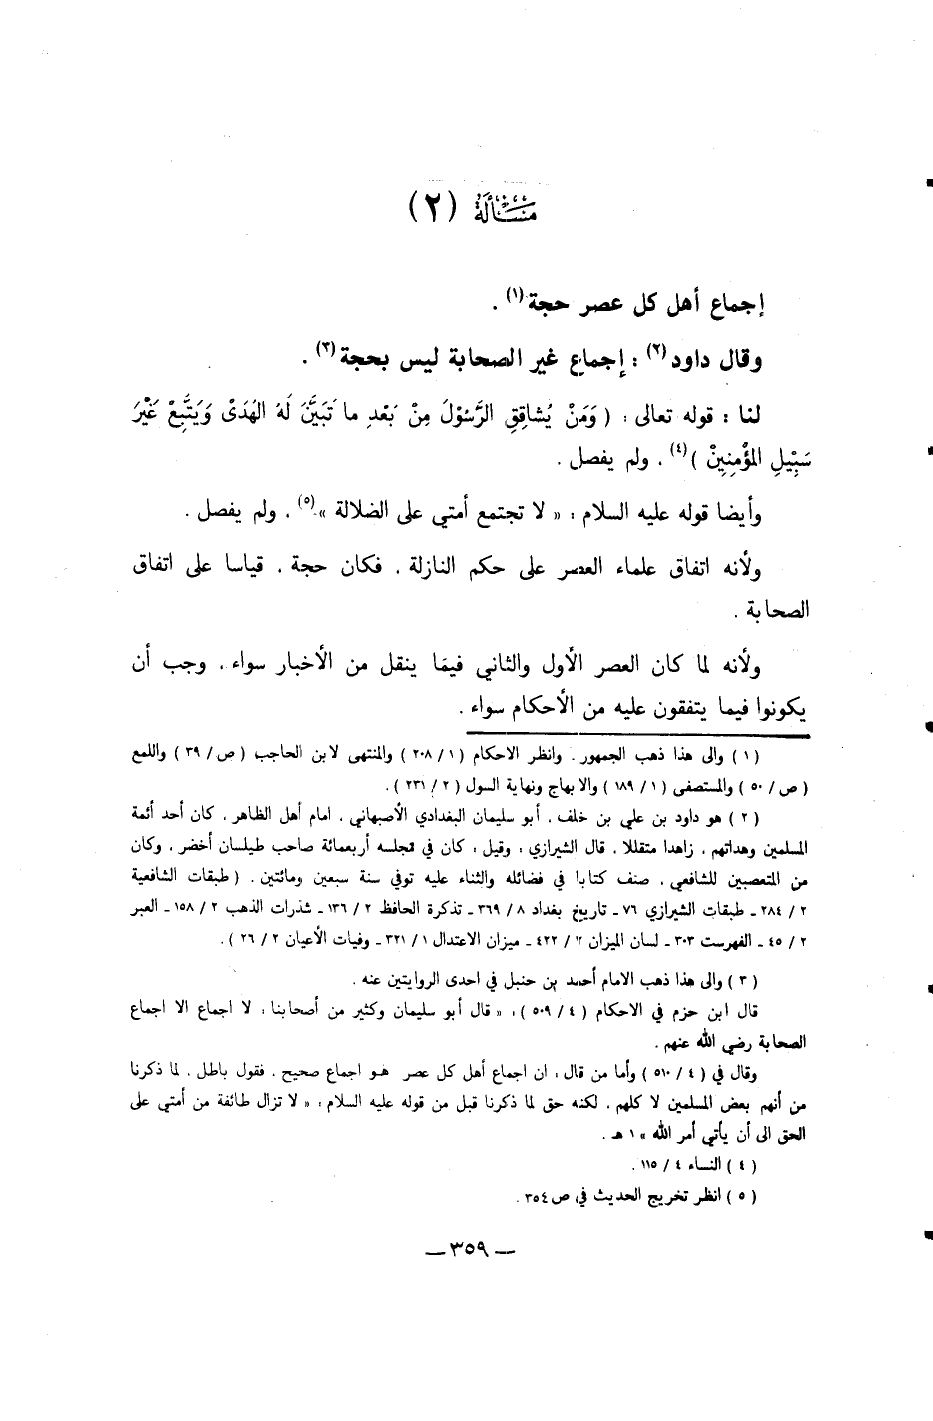 مسألة (٢)
إجماع أهل كل عصر حجة(١) .
وقال داود(٢) : إجماع غير الصحابة ليس بحجة(٣) .
لنا : قوله تعالى : ( وَمَنْ يُشاقِقِ الرَّسُوْلَ مِنْ بَعْدِ ما تَبَيَّنَ لَهُ الهُدَىْ وَيَتَّبِعْ غَيْرَ
سَبِيْلِ المُؤْمِنِيْنْ )(٤) ، ولم يفصل .
وأيضا قوله عليه السلام : « لا تجتمع أمتي على الضلالة »(٥) ، ولم يفصل .
ولأنه اتفاق علماء العصر على حكم النازلة ، فكان حجة ، قياسا على اتفاق
الصحابة .
ولأنه لما كان العصر الأول والثاني فيما ينقل من الأخبار سواء ، وجب أن
يكونوا فيما يتفقون عليه من الأحكام سواء .
( ١ ) والى هذا ذهب الجمهور . وانظر الاحكام ( ١ / ٢٠٨ ) والمنتهى لابن الحاجب ( ص / ٣٩ ) واللمع
( ص / ٥٠ ) والمستصفى ( ١ / ١٨٩ ) والابهاج ونهاية السول ( ٢ / ٢٣١ ) .
( ٢ ) هو داود بن علي بن خلف ، أبو سليمان البغدادي الأصبهاني ، امام أهل الظاهر ، كان أحد أئمة
المسلمين وهداتهم ، زاهدا متقللا ، قال الشيرازي : وقيل : كان في مجلسه أربعمائة صاحب طيلسان أخضر ، وكان
من المتعصبين للشافعي ، صنف كتابا في فضائله والثناء عليه توفي سنة سبعين ومائتين . ( طبقات الشافعية
٢ / ٢٨٤ ـ طبقات الشيرازي ٧٦ ـ تاريخ بغداد ٨ / ٣٦٩ ـ تذكرة الحافظ ٢ / ١٣٦ ـ شذرات الذهب ٢ / ١٥٨ ـ العبر
٢ / ٤٥ ـ الفهرست ٣٠٣ ـ لسان الميزان ٢ / ٤٢٢ ـ ميزان الاعتدال ١ / ٣٢١ ـ وفيات الأعيان ٢ / ٢٦ ) .
( ٣ ) والى هذا ذهب الامام أحمد بن حنبل في احدى الروايتين عنه .
قال ابن حزم في الاحكام ( ٤ / ٥٠٩ ) : « قال أبو سليمان وكثير من أصحابنا : لا اجماع الا اجماع
الصحابة رضي الله عنهم .
وقال في ( ٤ / ٥١٠ ) وأما من قال : ان اجماع أهل كل عصر هـو اجماع صحيح . فقول باطل . لما ذكرنا
من أنهم بعض المسلمين لا كلهم . لكنه حق لما ذكرنا قبل من قوله عليه السلام : « لا تزال طائفة من أمتي على
الحق الى أن يأتي أمر الله » ١ هـ .
( ٤ ) النساء ٤ / ١١٥ .
( ٥ ) انظر تخريج الحديث في ص ٣٥٤ .
ـ ٣٥٩ ـ